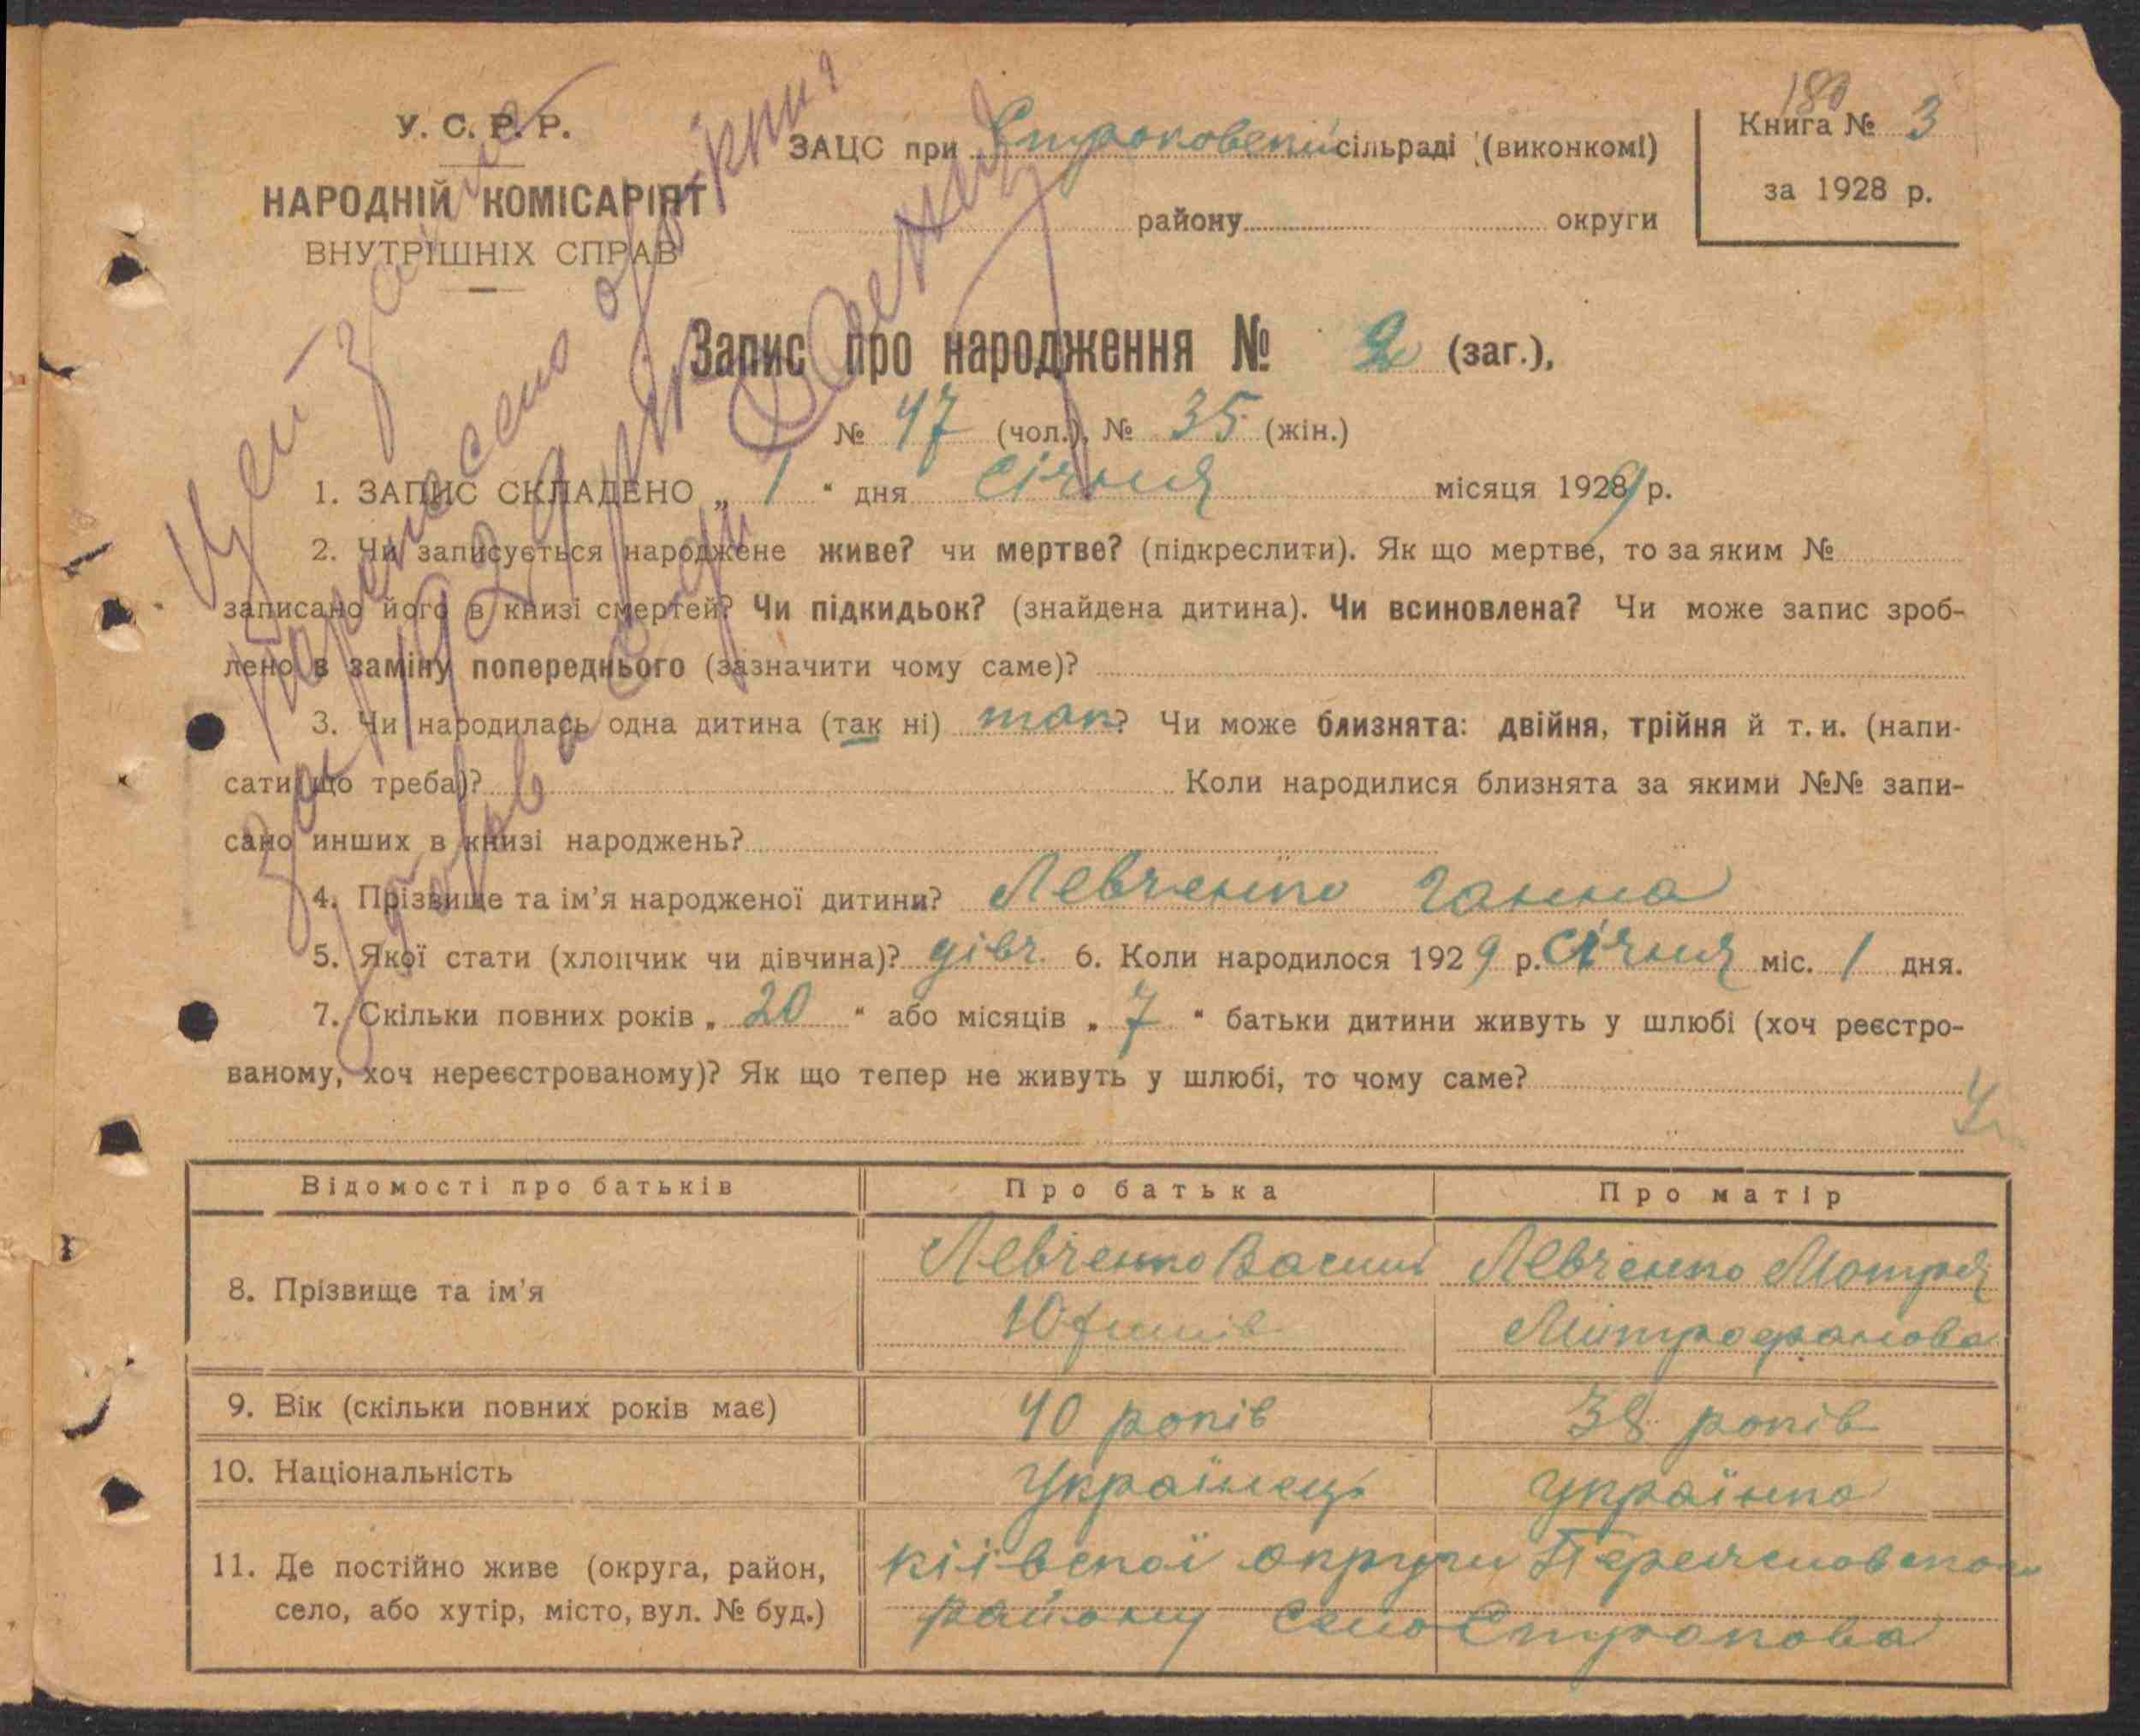 180
У. С. Р. Р.
НАРОДНІЙ КОМІСАРІЯТ
ВНУТРІШНІХ СПРАВ
ЗАЦС при Строковській сільраді (виконкомі)
району округи
Книга № 3
за 1928 р.
Цей запис
перенесено обліки
за 1929 рік
Запис про народження № 2 (заг.),
№ 47 (чол.), № 35 (жін.)
1. ЗАПИС СКЛАДЕНО „ 1 “ дня січня місяця 1929 р.
2. Чи записується народжене живе? чи мертве? (підкреслити). Як що мертве, то за яким №
записано його в книзі смертей? Чи підкидьок? (знайдена дитина). Чи всиновлена? Чи може запис зроб-
лено в заміну попереднього (зазначити чому саме)?
3. Чи народилась одна дитина (так ні) так? Чи може близнята: двійня, трійня й т. и. (напи-
сати що треба)? Коли народилися близнята за якими №№ запи-
сано инших в книзі народжень?
4. Прізвище та ім’я народженої дитини? Левченко Ганна
5. Якої стати (хлопчик чи дівчина)? дівч. 6. Коли народилося 1929 р. січня міс. 1 дня.
7. Скільки повних років „ 20 “ або місяців „ 7 “ батьки дитини живуть у шлюбі (хоч реєстро-
ваному, хоч нереєстрованому)? Як що тепер не живуть у шлюбі, то чому саме?
Відомості про батьків Про батька Про матір
8. Прізвище та ім’я
Левченко Васил Левченко Мотря
Юхимів Митрофанова
9. Вік (скільки повних років має) 40 років 38 років
10. Національність Українець Українка
11. Де постійно живе (округа, район,
село, або хутір, місто, вул. № буд.)
Кіівскої округи Переяславского
району село Строкова